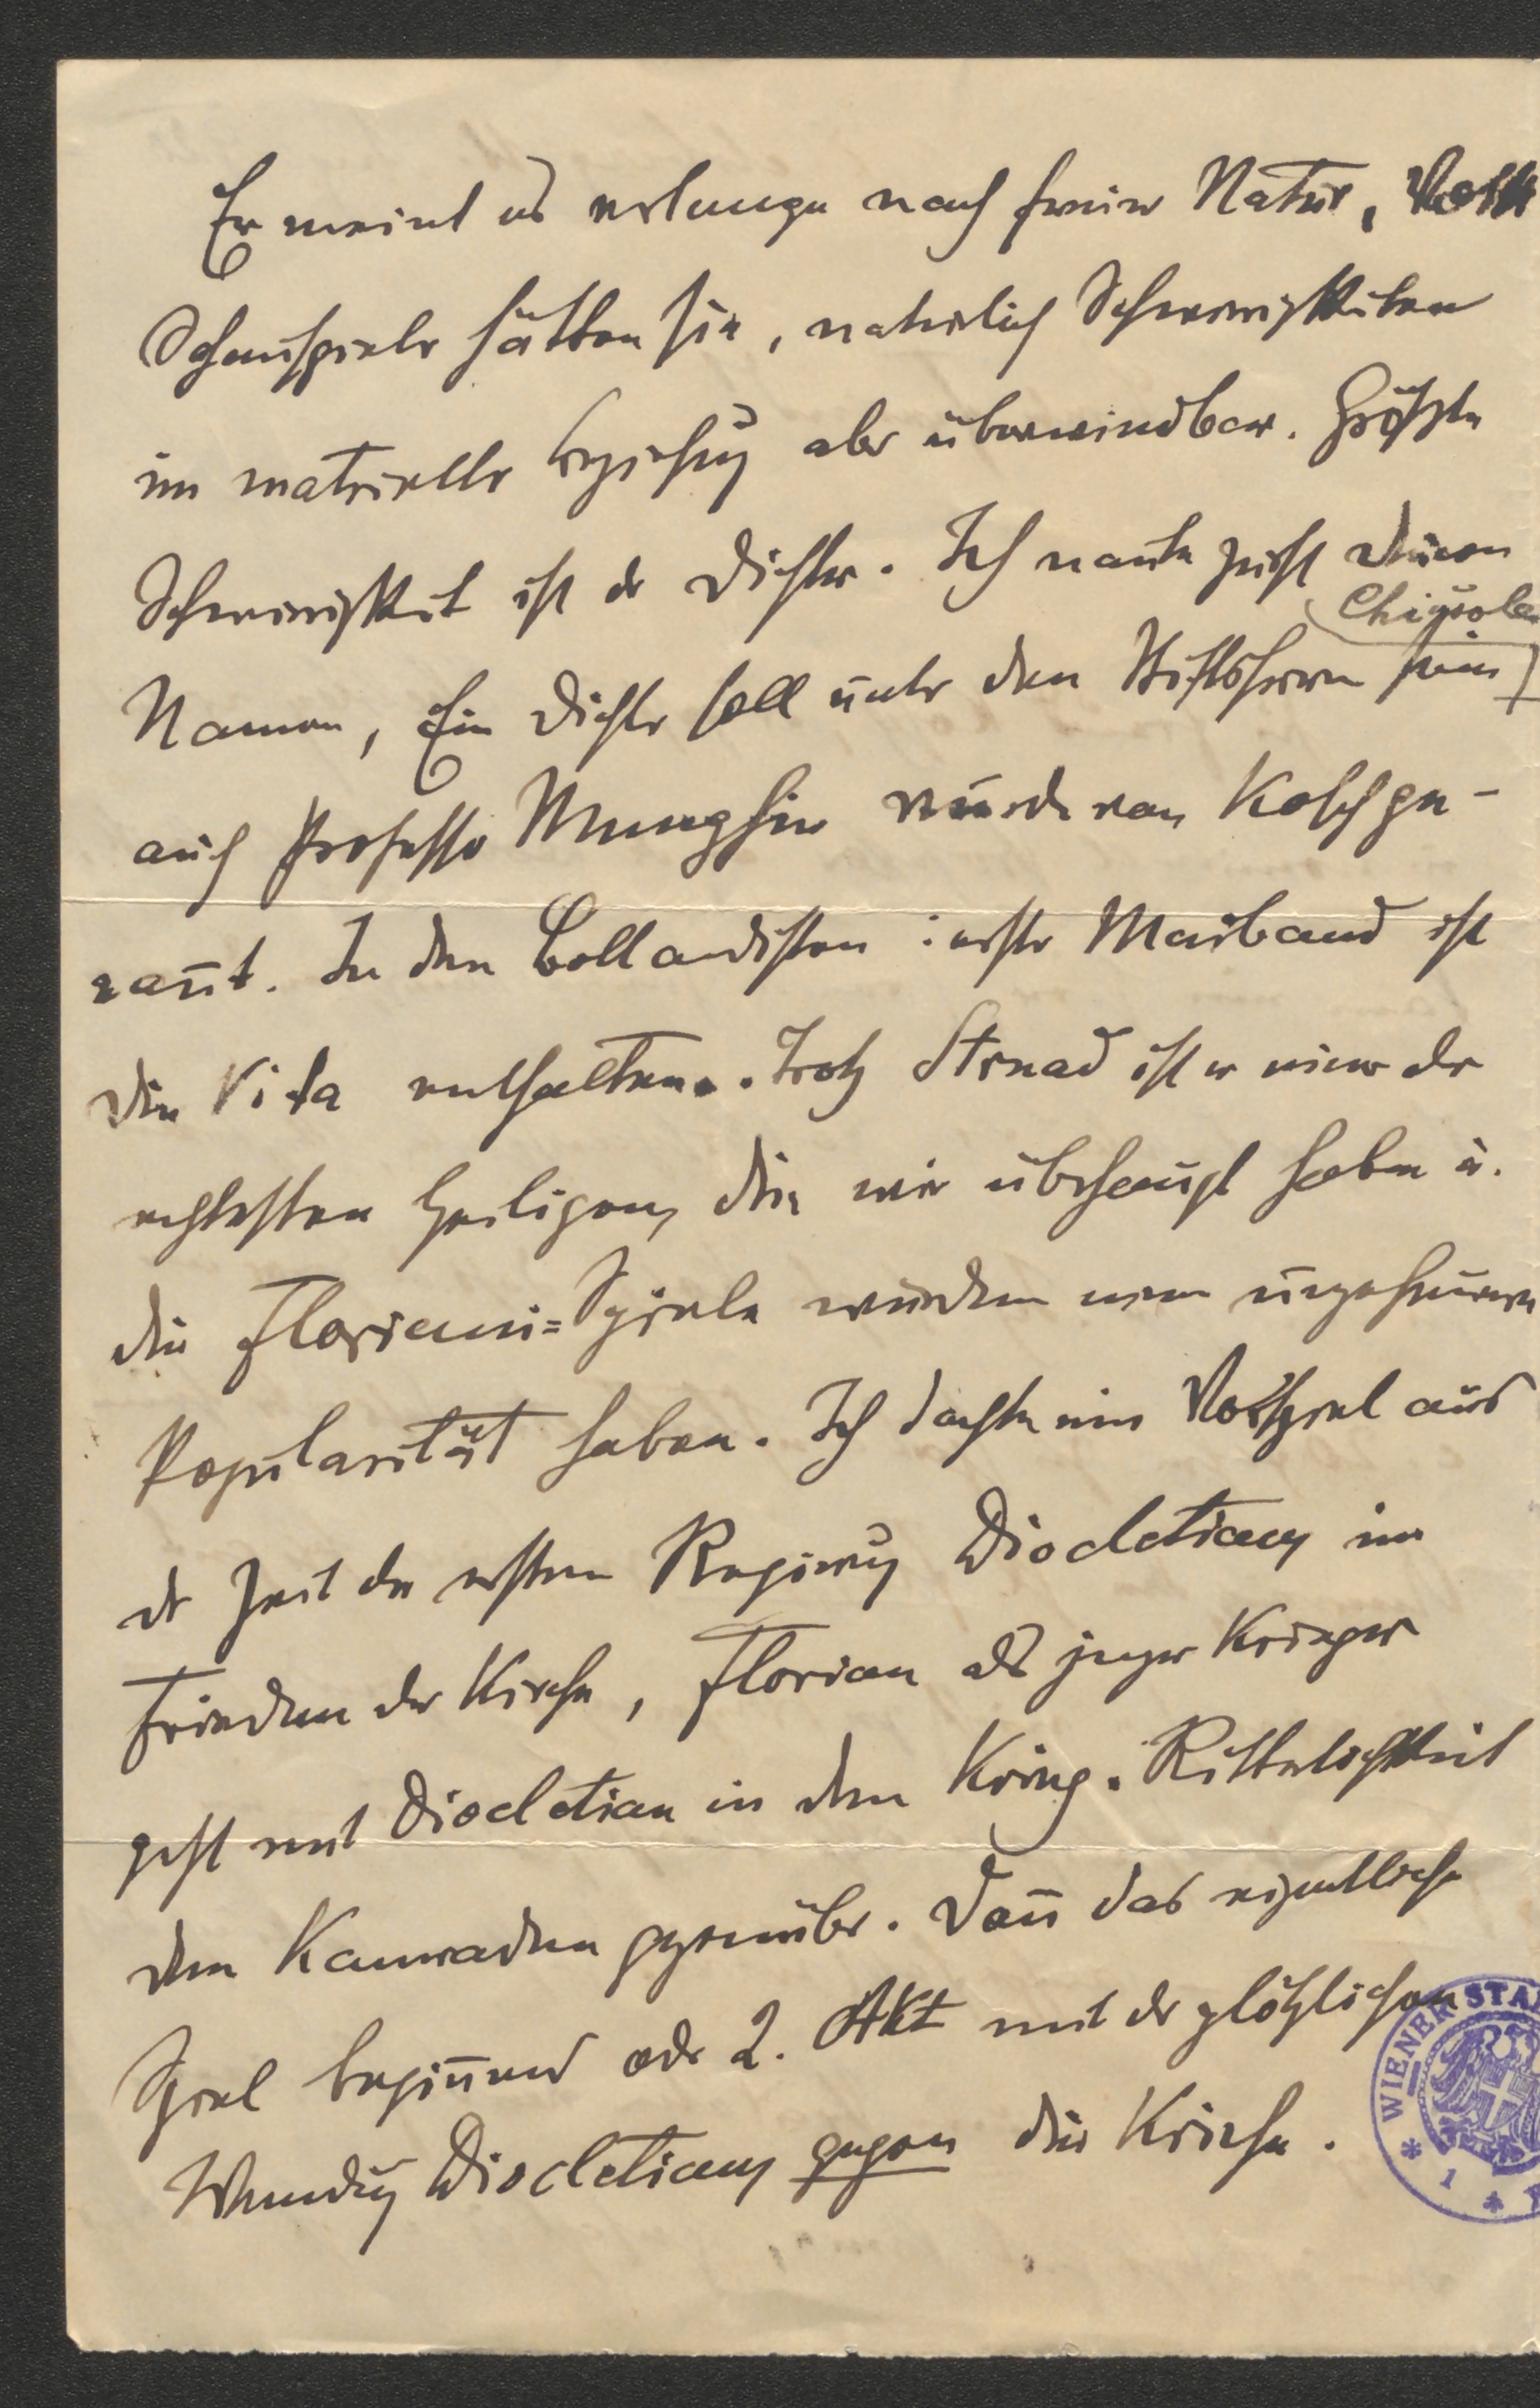 Er meint es verlange nach freier Natur,
Schauspieler hätten sie, natürlich Schwierigkeiten
in matrieller Beziehung aber überwindbar. Größte
Schwierigkeit ist der Dichter. Ich nannte zuerst Deinen
Namen, Ein Dichter soll unter den Stiftsherrn sein
auch Professor wurde von Kolch ge-
nannt. In den Bollandisten : erster Maiband ist
die Vita enthalten. Trotz Strnad ist er einer der
echtesten Heiligen, die wir überhaupt haben u.
die Floriani=Spiele würden eine ungeheuere
Popularität haben. Ich dachte ein Vorspiel aus
der Zeit der ersten Regierung Diocletians im
Frieden der Kirche, Florian als junger Krieger
geht mit Diocletian in den Krieg. Ritterlichkeit
den Kameraden gegenüber. Dann das eigentliche
Spiel beginnend oder 2. Akt mit der plötzlichen
Wendung Diocletians gegen die Kirche.
WIENER